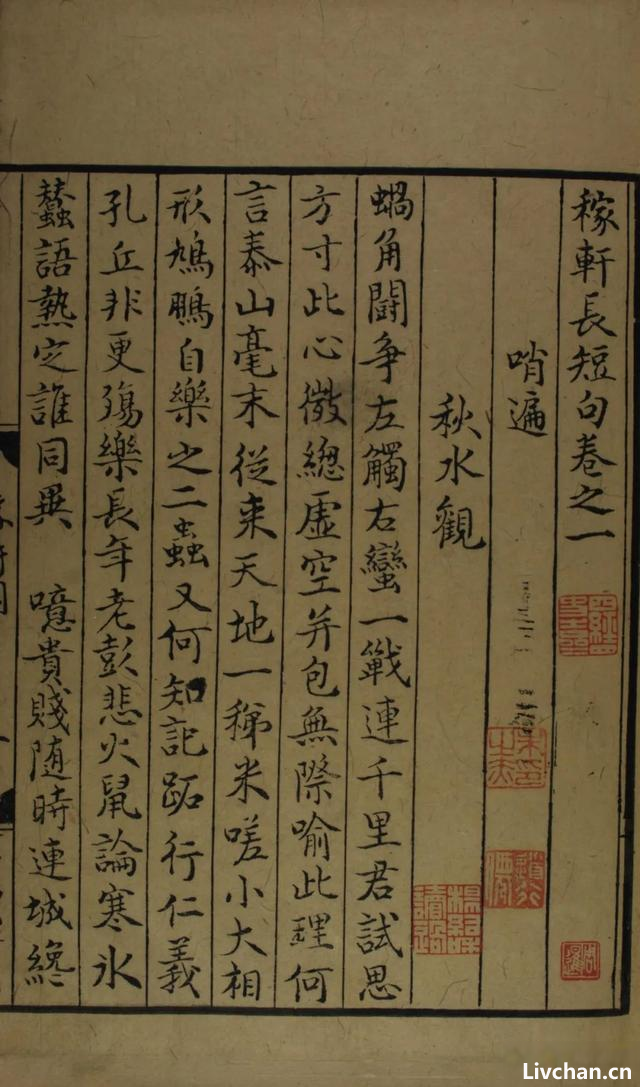 稼軒長短句卷之一
哨遍
秋水觀
蝸角鬪争左觸右蠻一戰連千里君試思
方寸此心微總虚空并包無際喻此理何
言泰山毫末從来天地一稊米嗟小大相
形鳩鵬自樂之二蟲又何知記跖行仁義
孔丘非更殤樂長年老彭悲火鼠論寒氷
蠶語熱定誰同異　噫貴賤随時連城纔
Livchan.cn